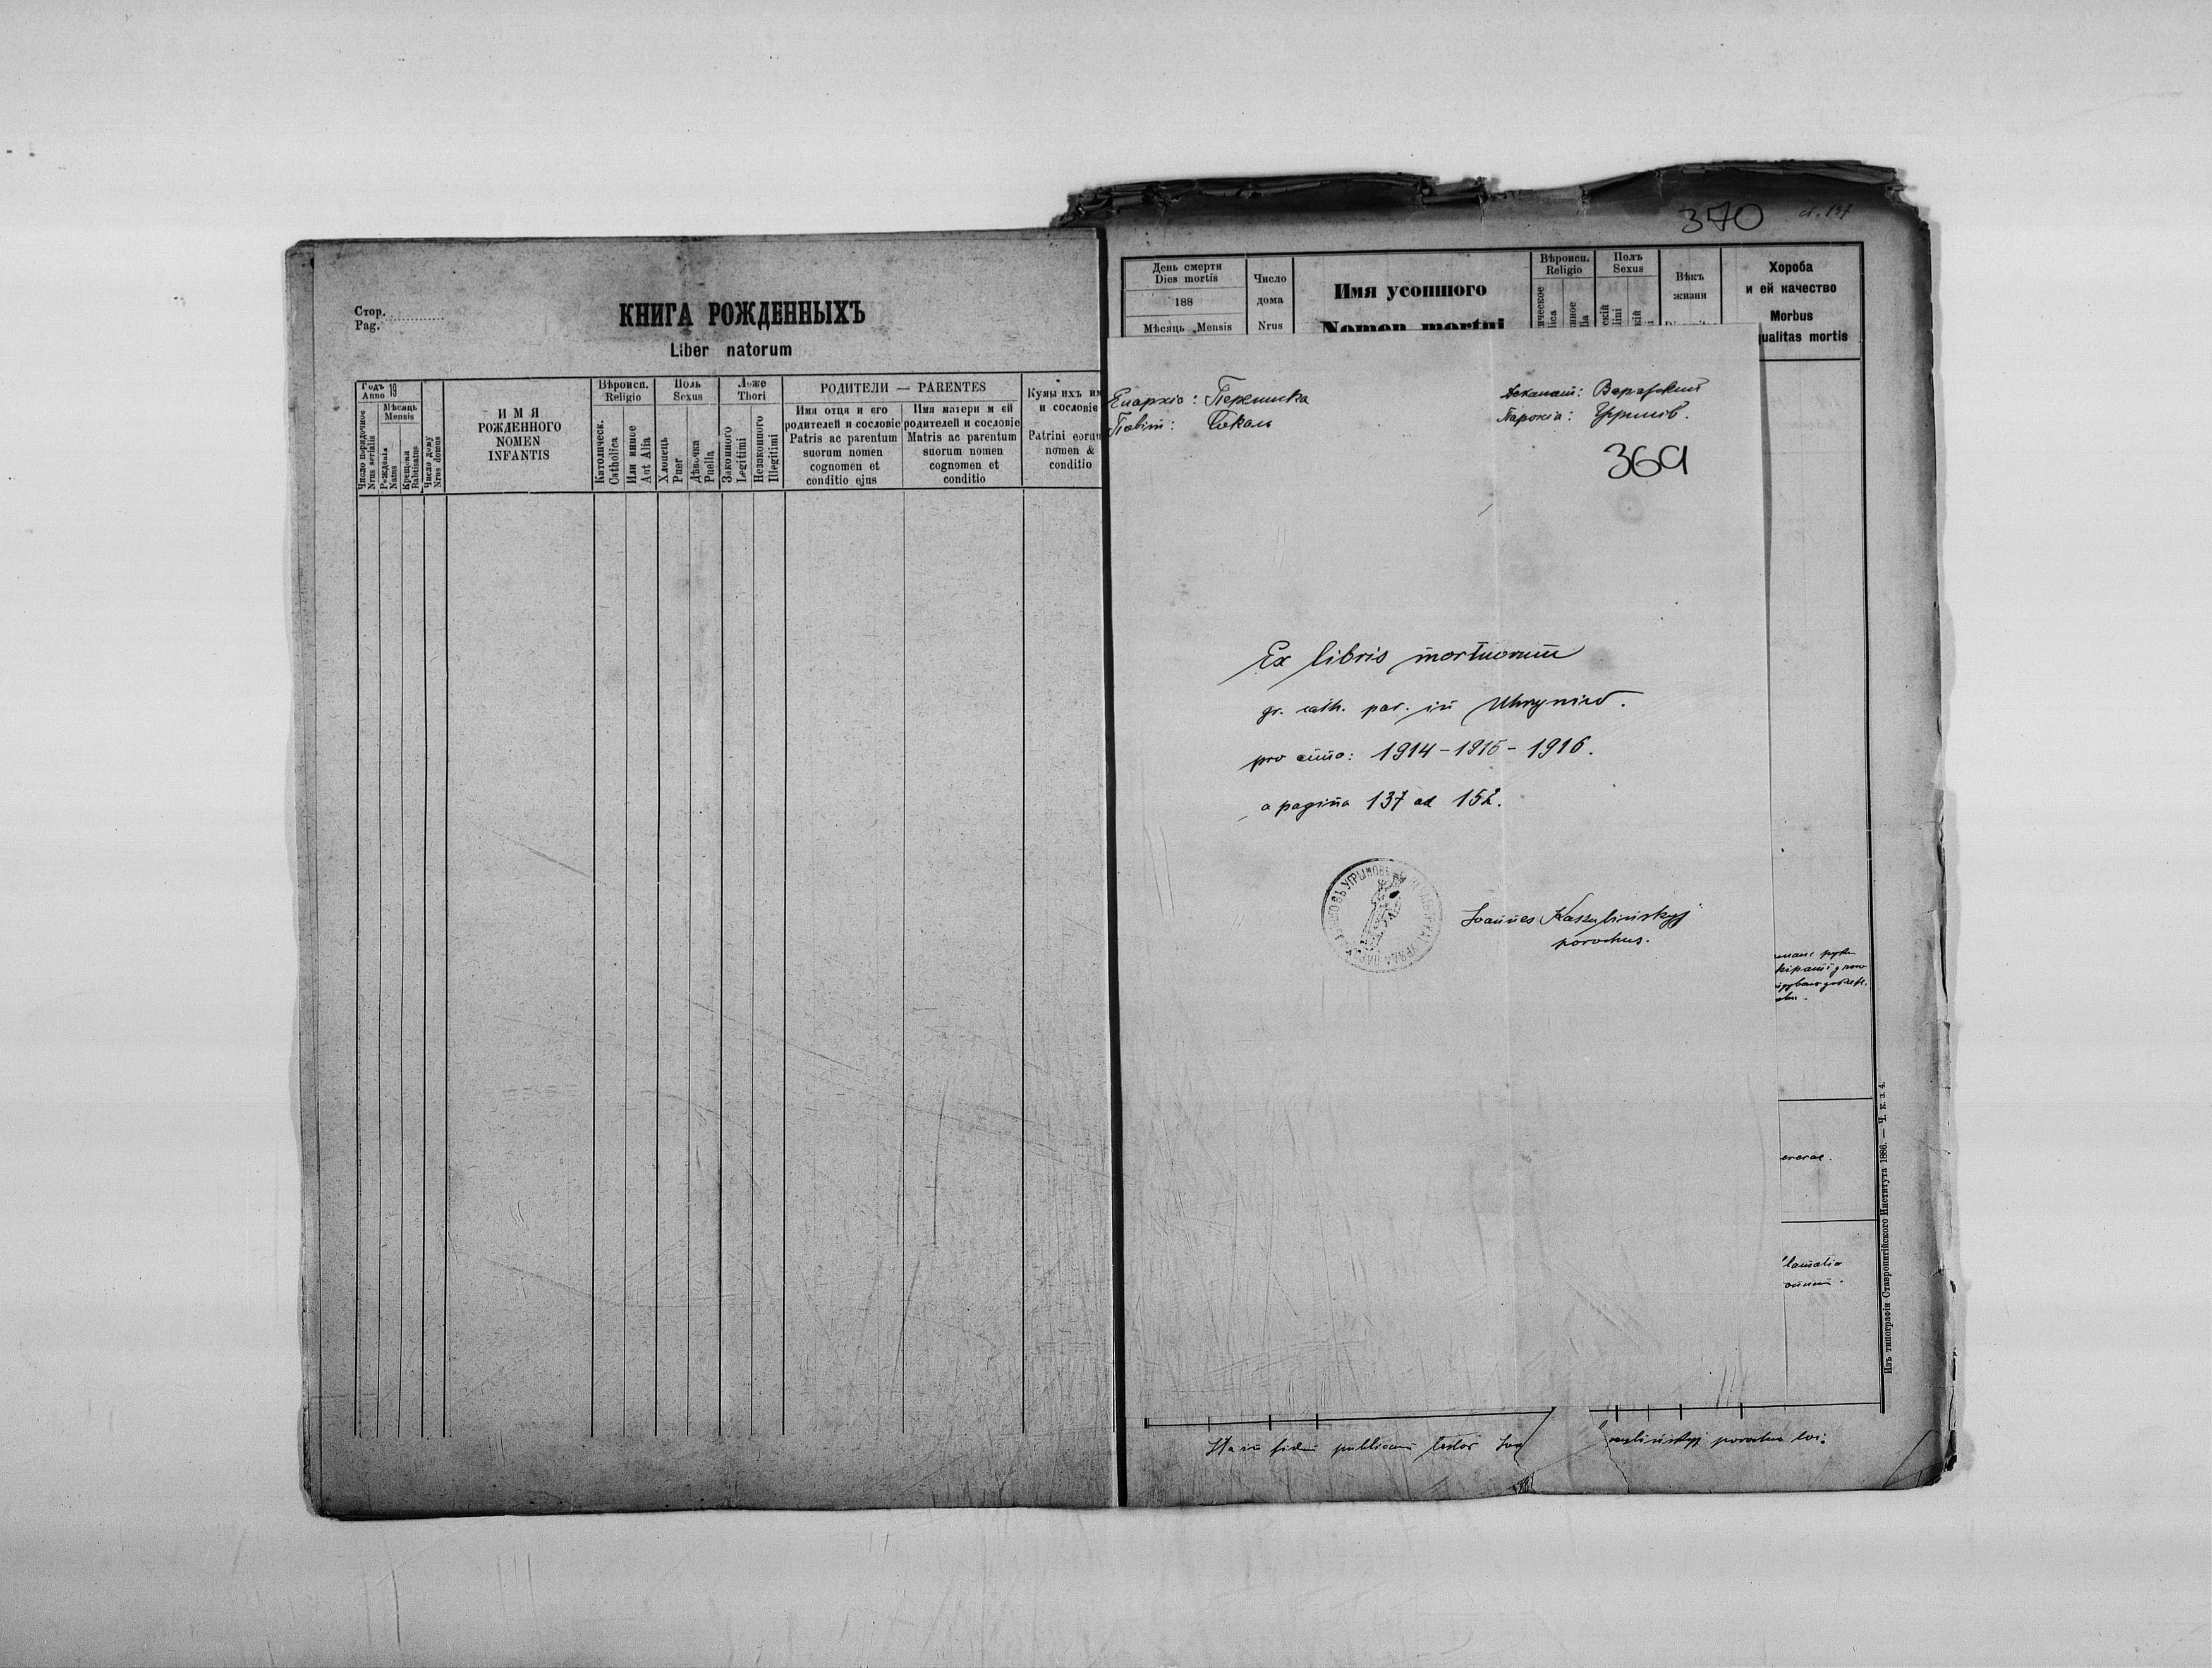 Стор.
Pag.
КНИГА РОЖДЕННЫХЪ
Liber natorum
Годъ 19
Anno
Мѣсяць
Mensis
Число порядочное
Nrus serialis
Рожденія
Natus
Крещенія
Babtisatus
Число дому
Nrus domus
ИМЯ
РОЖДЕННОГО
NOMEN
INFANTIS
Вѣроисп.
Religio
Католическ.
Catholica
Или инное
Aut Alia
Поль
Sexus
Хлопець
Puer
Дѣвочка
Puella
Ложе
Thori
Законного
Legitimi
Незаконного
Illegitimi
РОДИТЕЛИ — PARENTES
Имя отця и его
родителей и сословіе
Patris ac parentum
suorum nomen
cognomen et
conditio ejus
Имя матери и ей
родителей и сословіе
Matris ac parentum
suorum nomen
cognomen et
conditio
Кумы ихъ
и сословіе
Patrini
nomen &
conditio
370
ст. 137
День смерти
Dies mortis
188
Мѣсяць Mensis
Число
дома
Nrus
Имя усопшого
Nomen mortui
Вѣроисп.
Religio
Полъ
Sexus
Вѣкъ
жизни
Хороба
и ей качество
Morbus
qualitas mortis
Епархія: Перемиска
Повіт: Сокаль
Деканат:
Парохія: Угринів.
369
Ex libris mortuorum
gr. cath. par. in Uhryniw.
pro anno: 1914-1915-1916.
a pagina 137 ad 152.
Joannes Kaszubinskyj
parochus.
Ita in fidem publicam testor
parochus loci
Изъ типографіи Ставропигійского Института 1886. — Ч. к. з. 4.